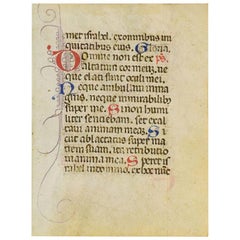 met israhel. ex omnibus in
iquitatibus eius. Gloria.
Domine non est ex ps
altatum cor meum. ne
que elati sunt oculi mei.
Neque ambulaui in ma
gnis. neque in mirabilib
super me. Si non humi
liter sentiebam. set exal
taui animam meam. S
icut ablactatus super ma
tre sua. ita retributio
in anima mea. Speret is
rahel in domino. ex hoc nunc